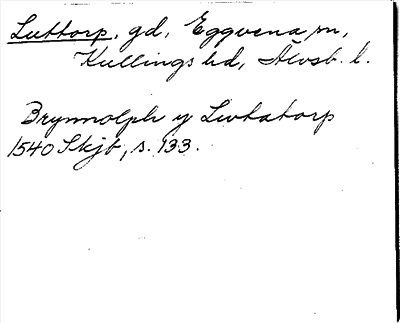 Luttorp, gd, Eggvena sn,
Kullings hd, Älvsb. l.
Brynnolph y Lwtatorp
1540 Skjb, s. 133.